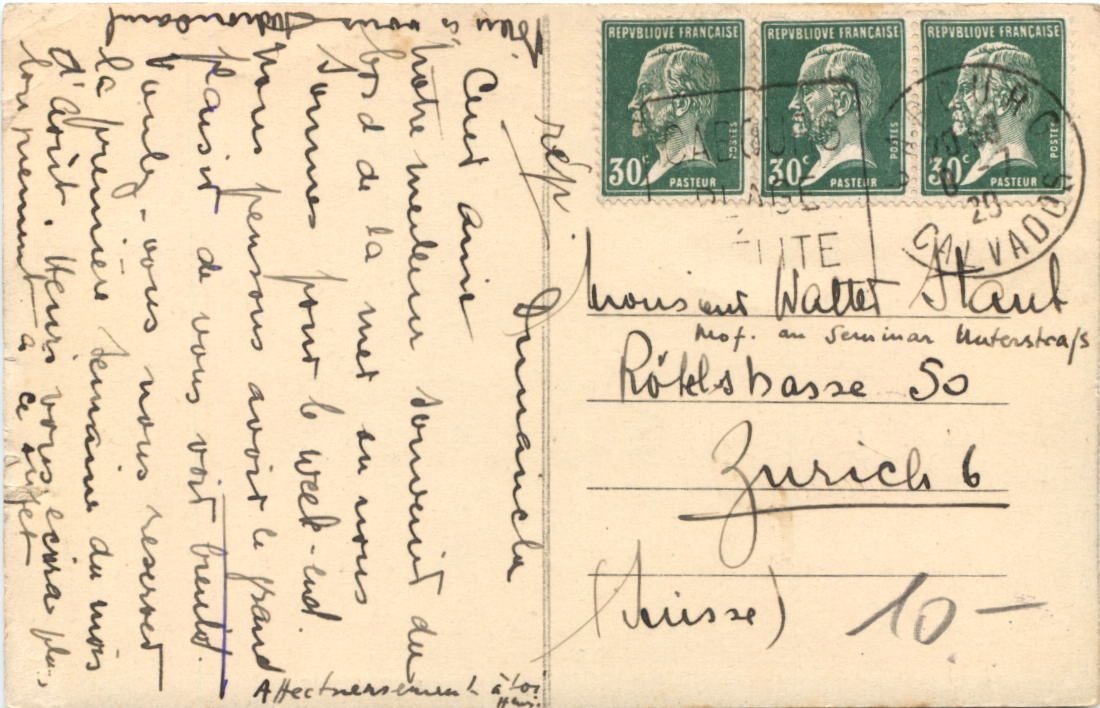 Dimanche
Cher ami
Notre meilleur souvenir du
bord de la mer où nous
sommes pour le week-end.
Nous pensons avoir le grand
plaisir de vous voir bientôt.
Voulez-vous nous réserver
la première semaine du mois
d'août. Henri vous écrira plus
longuement à ce sujet
Bien à vous
Affectueusement à toi
Henri
REPVBLIQUE FRANÇAISE
30c
POSTES
PASTEUR
REPVBLIQUE FRANÇAISE
30c
POSTES
PASTEUR
REPVBLIQUE FRANÇAISE
30c
POSTES
PASTEUR
CABOURG
PLAGE
ÉLITE
CABOURG
CALVADOS
29
Monsieur Walter Staub
Prof. am Seminar Unterstrass
Rötelstrasse 50
Zurich 6
(Suisse)
10-